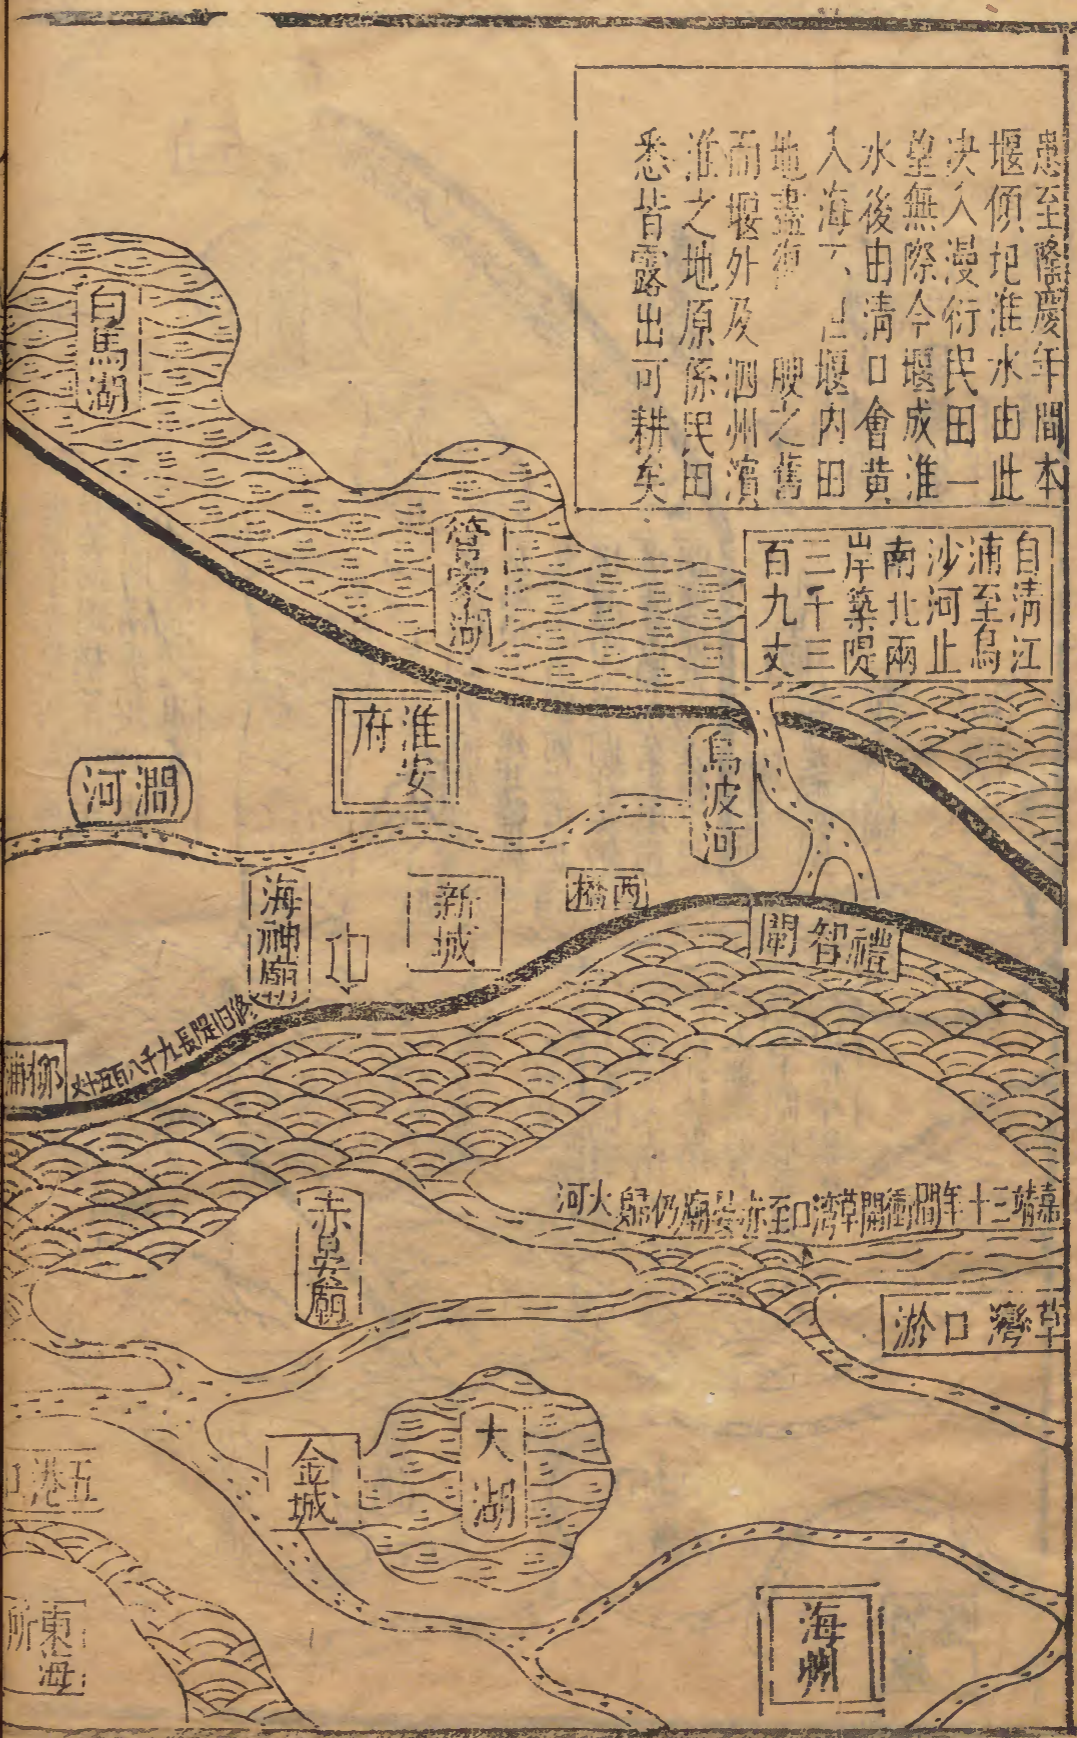 患至隆慶年間本
堰傾圮淮水由此
决入漫衍民田一
望無際今堰成淮
水後由清口會黄
入海 堰内田
地盡復 腴之舊
而堰外及泗州濱
淮之地原係民田
悉皆露出可耕矣
自清江
浦至烏
沙河止
南北兩
岸築隄
三千三
百九丈
白馬湖
管家湖
淮安
府
烏波河
澗河
西橋
禮智閘
新城
海神廟
修旧隄長九千八百五十丈
柳浦
嘉靖三十年間衝開草湾口至赤晏廟仍歸大河
赤晏廟
草灣口淤
大湖
金城
五港口
東海
所
海州